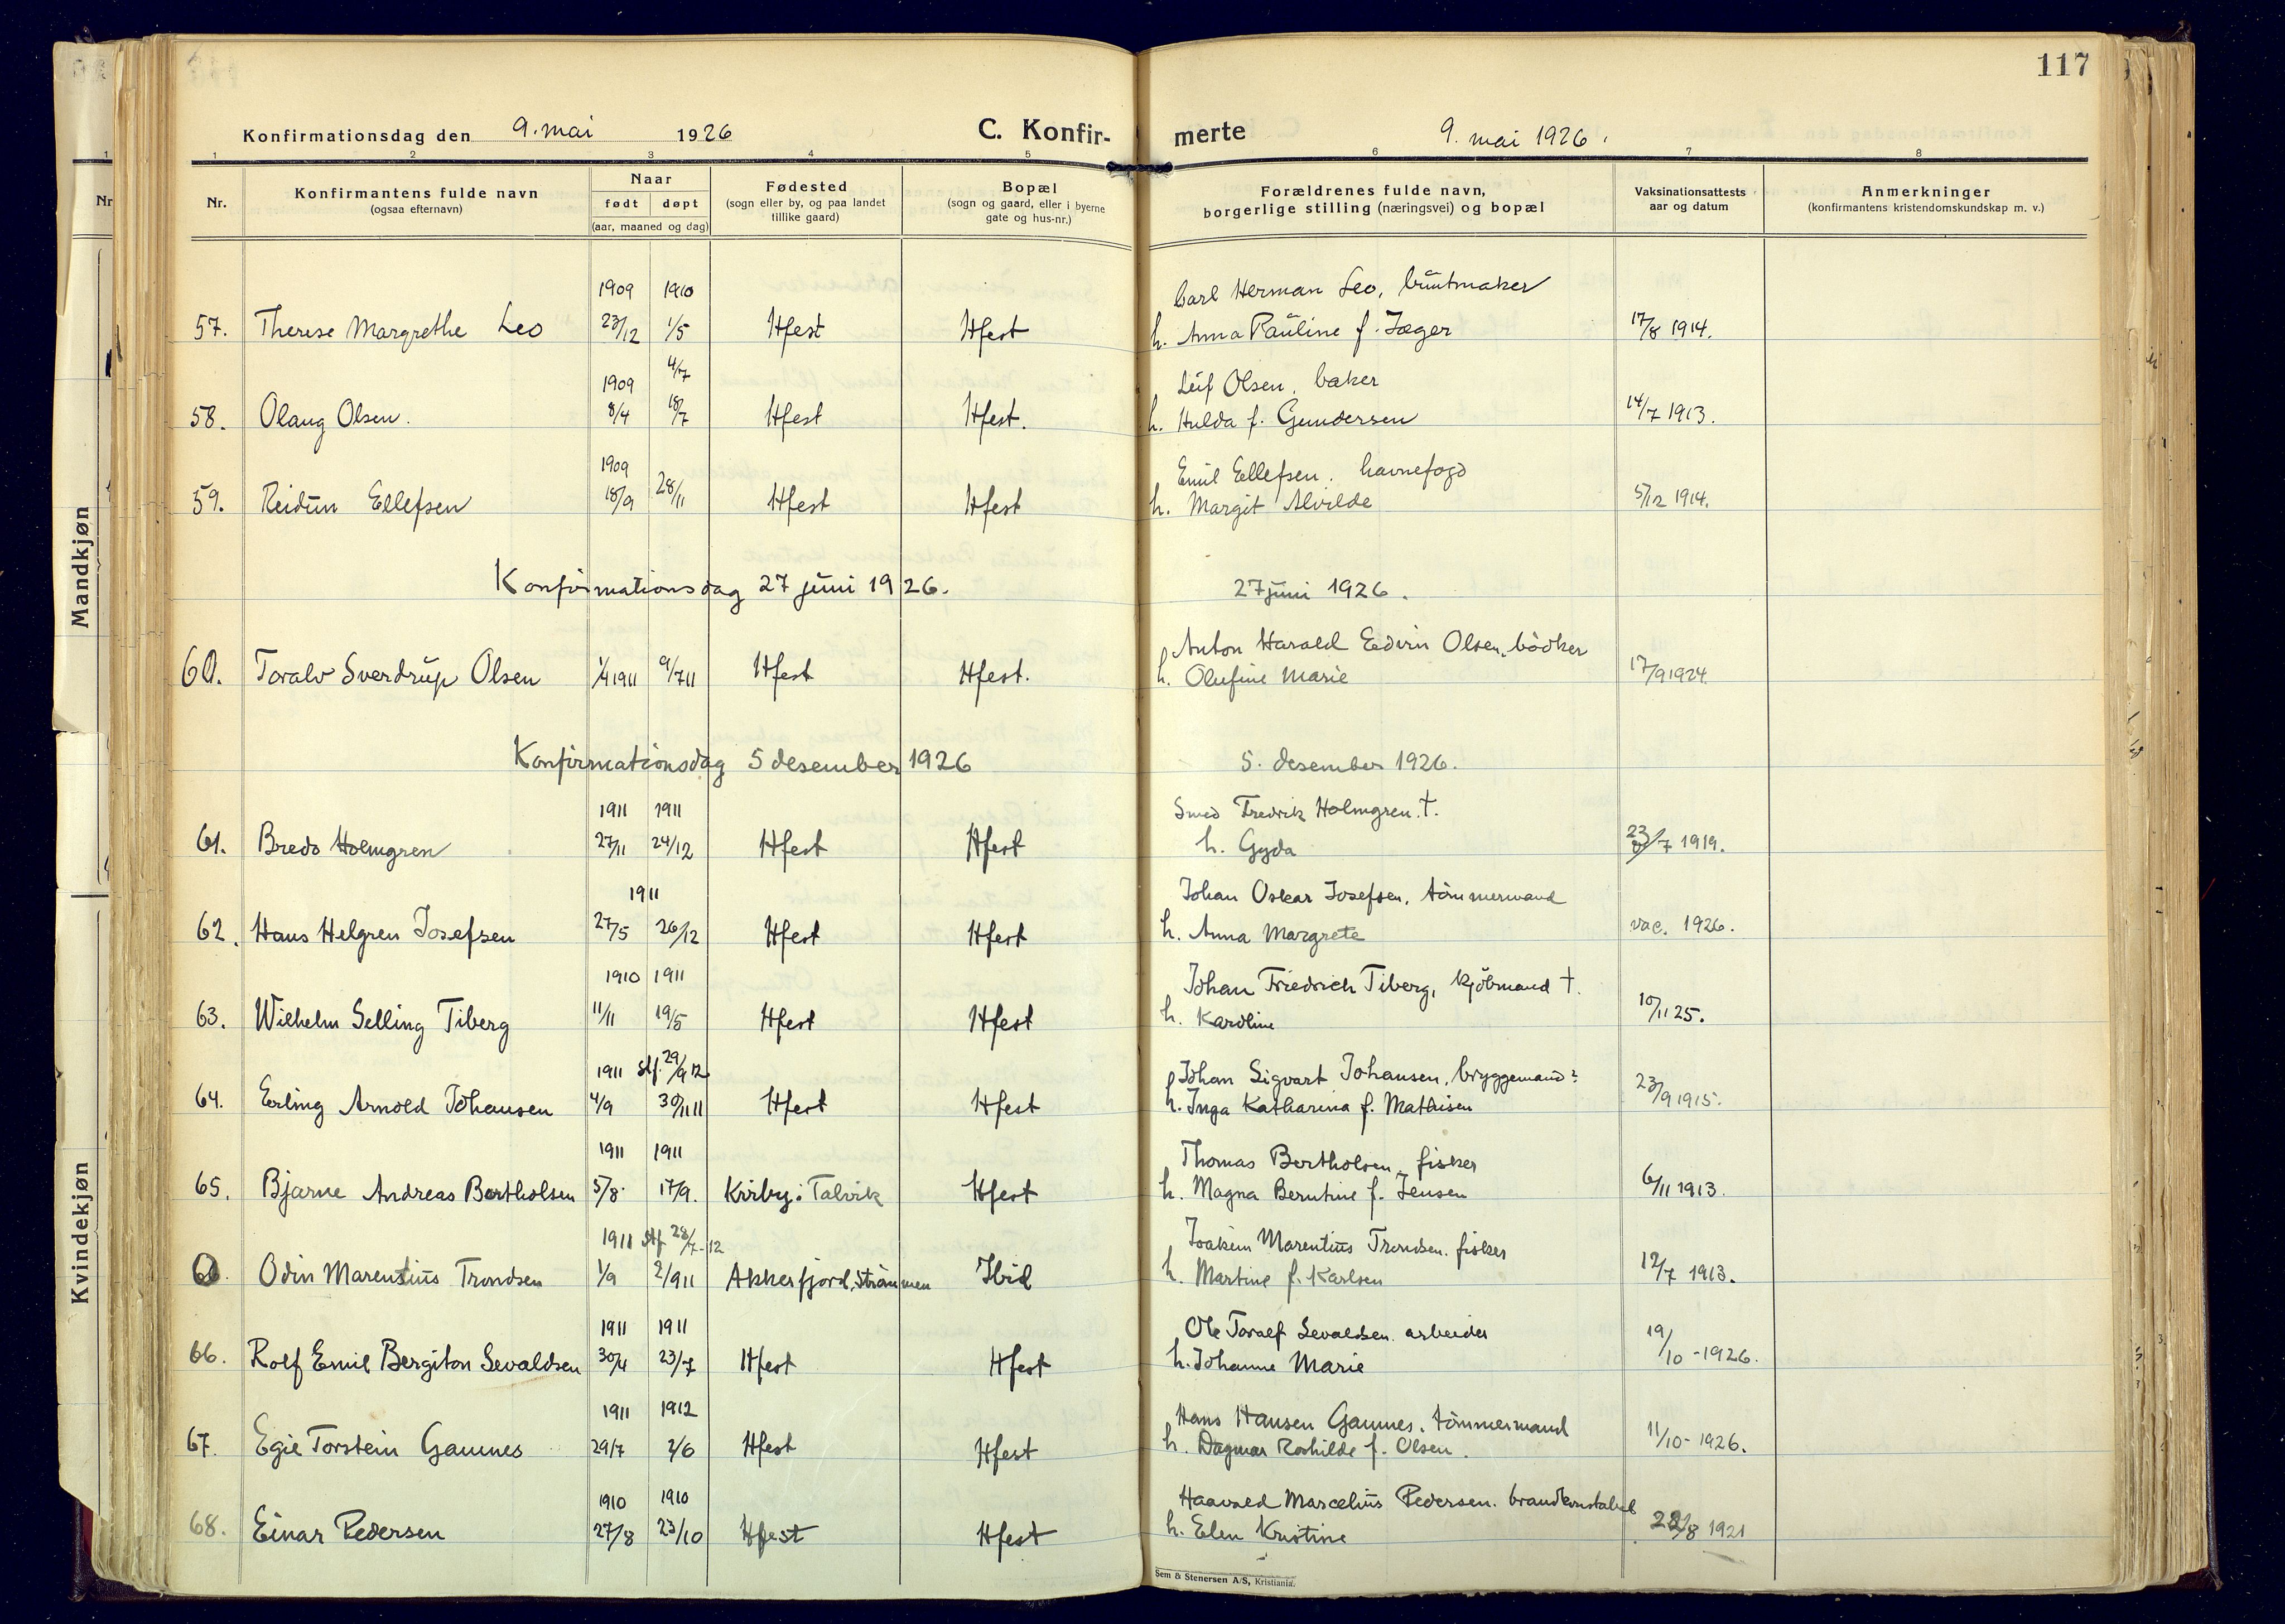 117
Konfirmationsdag den 9. mai 1926 C. Konfir- merte 9. mai 1926.
1 2 3 4 5 6 7 8
Nr. Konfirmantens fulde navn (ogsaa efternavn) Naar født døpt (aar, maaned og dag) Fødested (sogn eller by, og paa landet tillike gaard) Bopæl (sogn og gaard, eller i byerne gate og hus-nr.) Forældrenes fulde navn, borgerlige stilling (næringsvei) og bopæl Vaksinationsattests aar og datum Anmerkninger (konfirmantens kristendomskundskap m. v.)
1909 1910 Carl Herman Leo, buntmaker
57. Therese Margrethe Leo 23/12 1/5 Hfest Hfest h. Anna Pauline f. Jæger 17/8 1914.
1909 4/7 Leif Olsen, baker
58. Olaug Olsen. 8/4 18/7 Hfest Hfest. h. Hulda f. Gundersen 14/7 1913.
1909 Emil Ellefsen. havnefogd
59. Reidun Ellefsen 18/9 28/11 Hfest Hfest h. Margit Alvilde 5/12 1914.
Konfirmationsdag 27 juni 1926. 27 juni 1926.
Anton Harald Edvin Olsen, bödker
60. Toralv Sverdrup Olsen 1/4 1911 9/7 11 Hfest Hfest. h. Olufine Marie 17/9 1924
Konfirmationsdag 5 desember 1926 5. desember 1926.
1911 1911 Smed Fredrik Holmgren. †.
61. Bredo Holmgren 27/11 24/12 Hfest Hfest h. Gyda 23/7 1919.
1911 Johan Oskar Josefsen, tömmermand
62. Hans Helgren Josefsen 27/5 26/12 Hfest Hfest h. Anna Margrete vac. 1926.
1910 1911 Johan Friedrich Tiberg, kjöbmand †.
63. Wilhelm Selling Tiberg 11/11 19/5 Hfest Hfest h. Karoline 10/11 25.
1911 stf. 29/9 12 Johan Sigvart Johansen, bryggemand?
64. Erling Arnold Johansen 4/9 30/11 11 Hfest Hfest h. Inga Katharina f. Mathisen 23/9 1915.
1911 1911 Thomas Bertholsen, fisker
65. Bjarne Andreas Bertholsen 5/8. 17/9. Kviby i Talvik Hfest h. Magna Berntine f. Jensen 6/11 1913.
1911 stf 28/7-12 Joakim Marentius Trondsen. fisker
Odin Marentius Trondsen 1/9 2/9 11 Akkerfjord, Strömmen Ibid h. Martine f. Karlsen 12/7 1913.
1911 1911 Ole Toralf Sevaldsen. arbeider
66. Rolf Emil Bergiton Sevaldsen 30/4 23/7 Hfest Hfest h. Johanne Marie 19/10-1926.
1911 1912 Hans Hansen Gamnes, tömmermand
67. Egie Torstein Gamnes 29/7 2/6 Hfest Hfest h. Dagmar Roshilde f. Olsen. 11/10-1926.
1910 1910 Haavald Marcelius Pedersen. brandkonstabel
68. Einar Pedersen 27/8 23/10 Hfest Hfest h. Elen Kristine /8 1921
Sem & Stenersen A/S, Kristiania.
Mandkjøn
Kvindekjøn
Nr